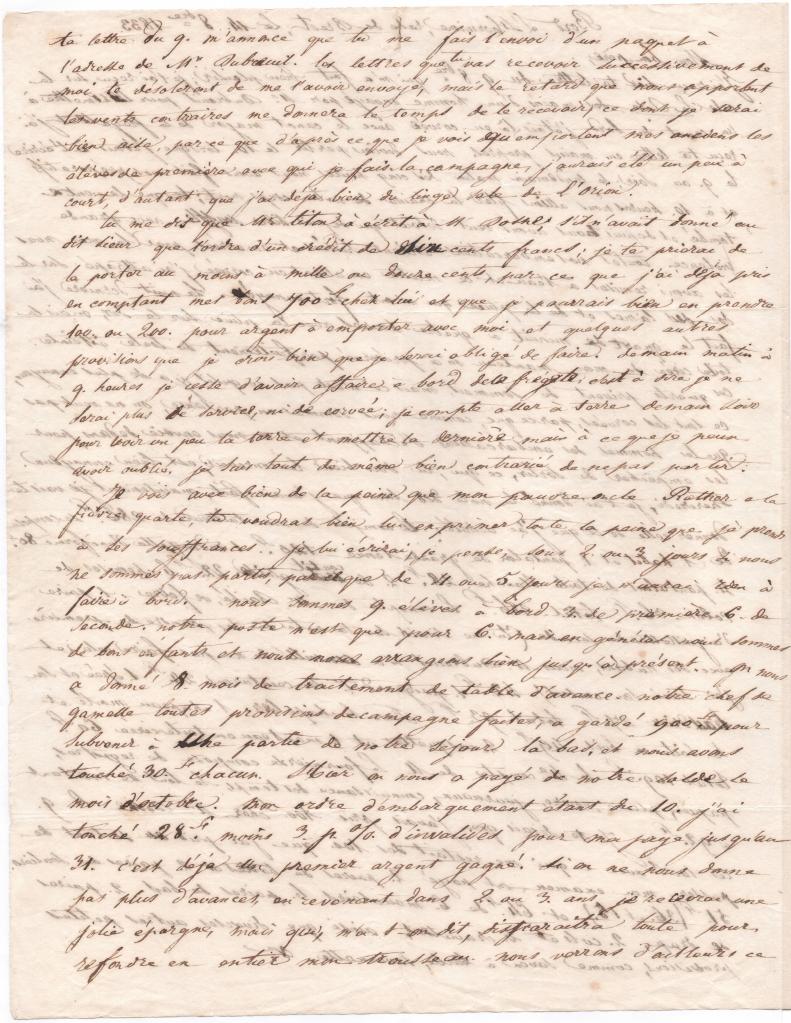 ta lettre du 9. m'annonce que tu me fais l'envoi d'un paquet à
l'adresse de Mr. Dubreuil. les lettres que tu vas recevoir successivement de
moi te désoleront de me l'avoir envoyé, mais le retard que nous apportent
les vents contraires me donnera le temps de le recevoir, ce dont je serai
bien aise, par ce que d'après ce que je vois qu'emportent mes anciens les
élèves de première avec qui je fais la campagne, j'aurais été un peu à
court, d'autant que j'ai déjà bien du linge sale de L'Orion.
tu me dis que Mr. titon à écrit à M. s'il n'avait donné au
dit sieur que l'ordre d'un crédit de cents francs; je te prierai de
le porter au moins à mille ou douze cents, par ce que j'ai déjà pris
en comptant met 700 f chez lui et que je pourrais bien en prendre
100. ou 200. pour argent à emporter avec moi et quelques autres
provisions que je crois bien que je serai obligé de faire. demain matin à
9. heures je cesse d'avoir affaire à bord de la frégate, c'est à dire je ne
serai plus de service, ni de corvée; je compte aller à terre demain soir
pour voir un peu la terre et mettre la dernière main à ce que je peux
avoir oublié. je suis tout de même bien contrarié de ne pas partir.
Je vois avec bien de la peine que mon pauvre oncle a la
fièvre quarte tu voudras bien lui exprimer toute la peine que je prends
à ses souffrances. je lui écrirai, je pense, sous 2. ou 3. jours si nous
ne sommes pas partis, parce que de 4. ou 5. jours je n'aurai rien à
faire à bord. nous sommes 9. élèves à bord 3. de première 6. de
seconde. notre poste n'est que pour 6. mais en général nous sommes
de bons enfants et nous nous arrangeons bien jusqu'à présent. on nous
a donné 8. mois de traitement de table d'avance. notre chef de
gamelle toutes provisions de campagne faites, a gardé 900 f pour
subvenir à une partie de notre séjour là bas, et nous avons
touché 30. f chacun. Hier on nous a payé de notre solde le
mois d'octobre. Mon ordre d'embarquement étant du 10. j'ai
touché 28. f moins 3. p. % d'invalides pour ma paye jusqu'au
31. c'est déjà un premier argent gagné. si on ne nous donne
pas plus d'avances, en revenant dans 2. ou 3. ans, je recevrai une
jolie épargne, mais qui, m'a t-on dit, disparaitra toute pour
refondre en entier mon trousseau. nous verrons d'ailleurs ce